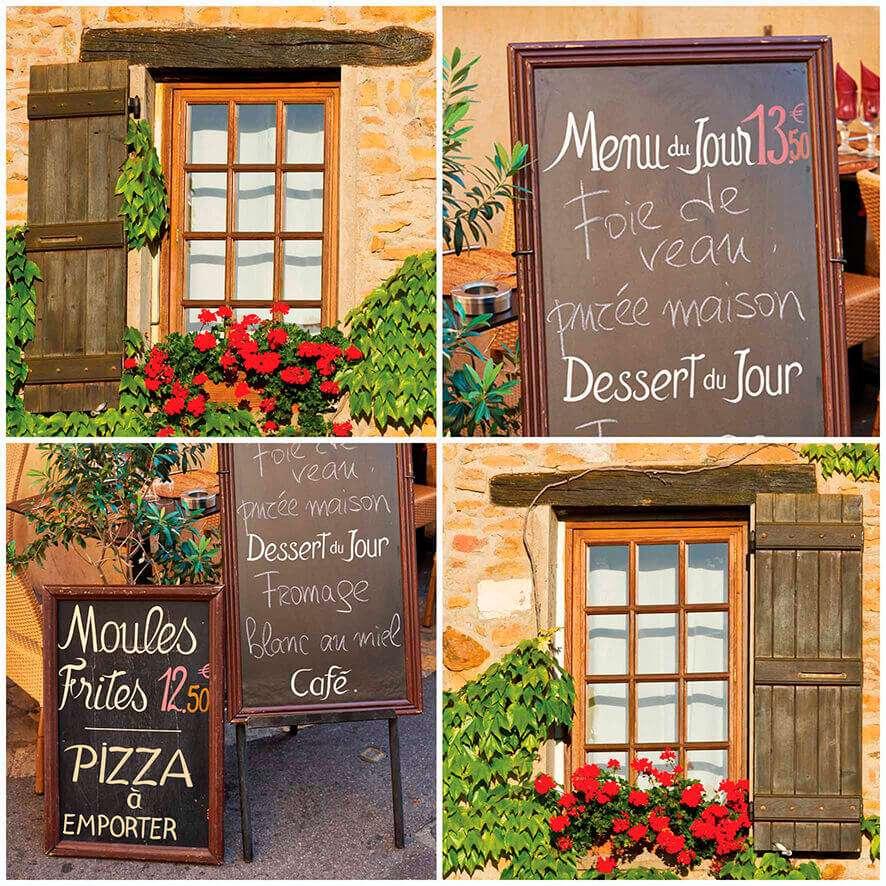 Menu du Jour 13.50 €
Foie de
veau.
purée maison
Dessert du Jour
Foie de
veau.
purée maison
Dessert du Jour
Fromage
blanc au miel
Café.
Moules
Frites 12.50 €
PIZZA
à
EMPORTER